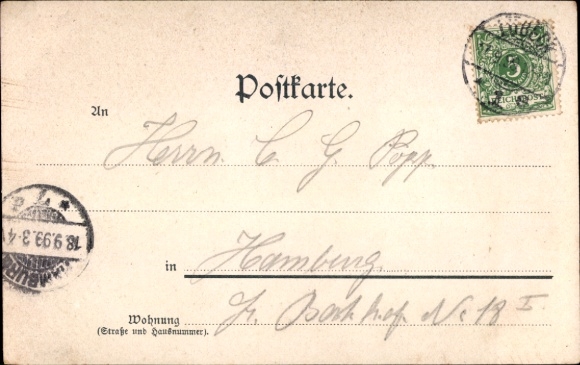 Postkarte.
LÜBECK
5
REICHSPOST
An
Herrn C G. Popp.
18.9.99.3-4
HAMBURG
in Hamburg
Wohnung
(Straße und Hausnummer). No 18 I